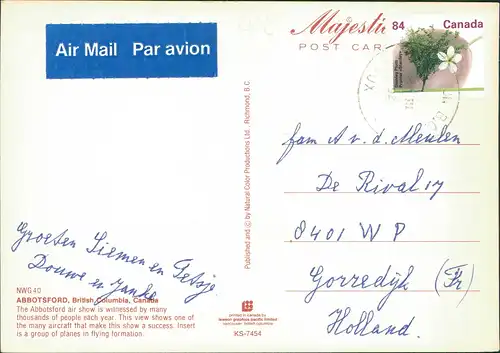 Air Mail Par avion
Majestic
POST CARD
84 Canada
fam A v. d. Meulen
De Rival 17
8401 WP
Gorredijk (Fr)
Holland.
Groeten Siemen en Fetsje
Douwe en Janke
NWG40
ABBOTSFORD, British Columbia, Canada
The Abbotsford air show is witnessed by many
thousands of people each year. This view shows one of
the many aircraft that make this show a success. Insert
is a group of planes in flying formation.
Published and © by Natural Color Productions Ltd., Richmond, B.C.
printed in canada by
KS-7454